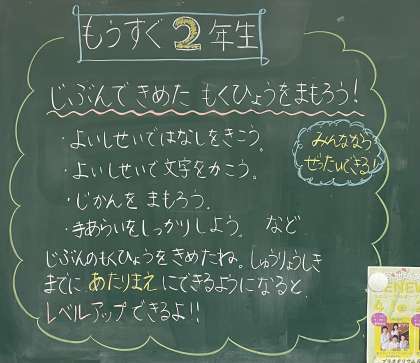 もうすぐ2年生
じぶんで きめた もくひょうをまもろう!
・よいしせいではなしをきこう。
・よいしせいで文字をかこう。
・じかんを まもろう。
・手あらいをしっかりしよう。 など
みんななら
ぜったいできる!
じぶんのもくひょうをきめたね。しゅうりょうしき
までに あたりまえ にできるようになると
レベルアップできるよ!!